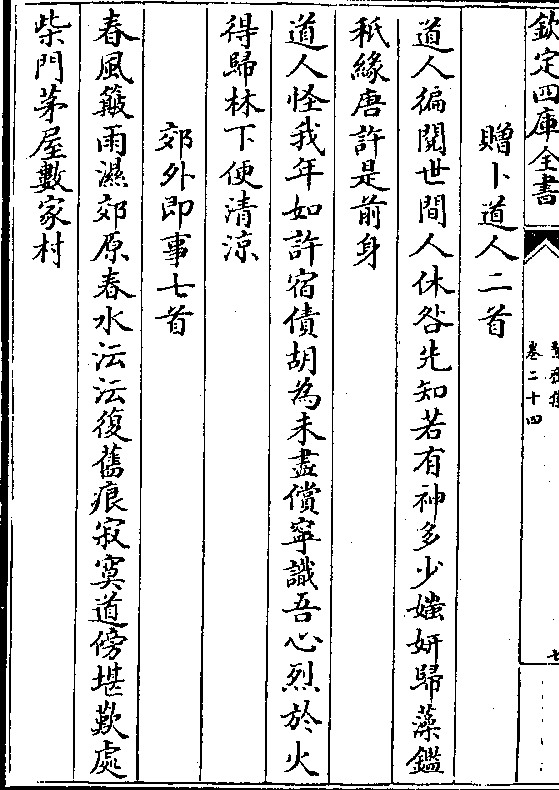 欽定四庫全書
卷二十四
七
贈卜道人二首
道人徧閱世間人休咎先知若有神多少媸妍歸藻鑑
秖緣唐許是前身
道人怪我年如許宿債胡為未盡償寧識吾心烈於火
得歸林下便清涼
郊外即事七首
春風簸雨濕郊原春水沄沄復舊痕寂寞道傍堪歎處
柴門茅屋數家村